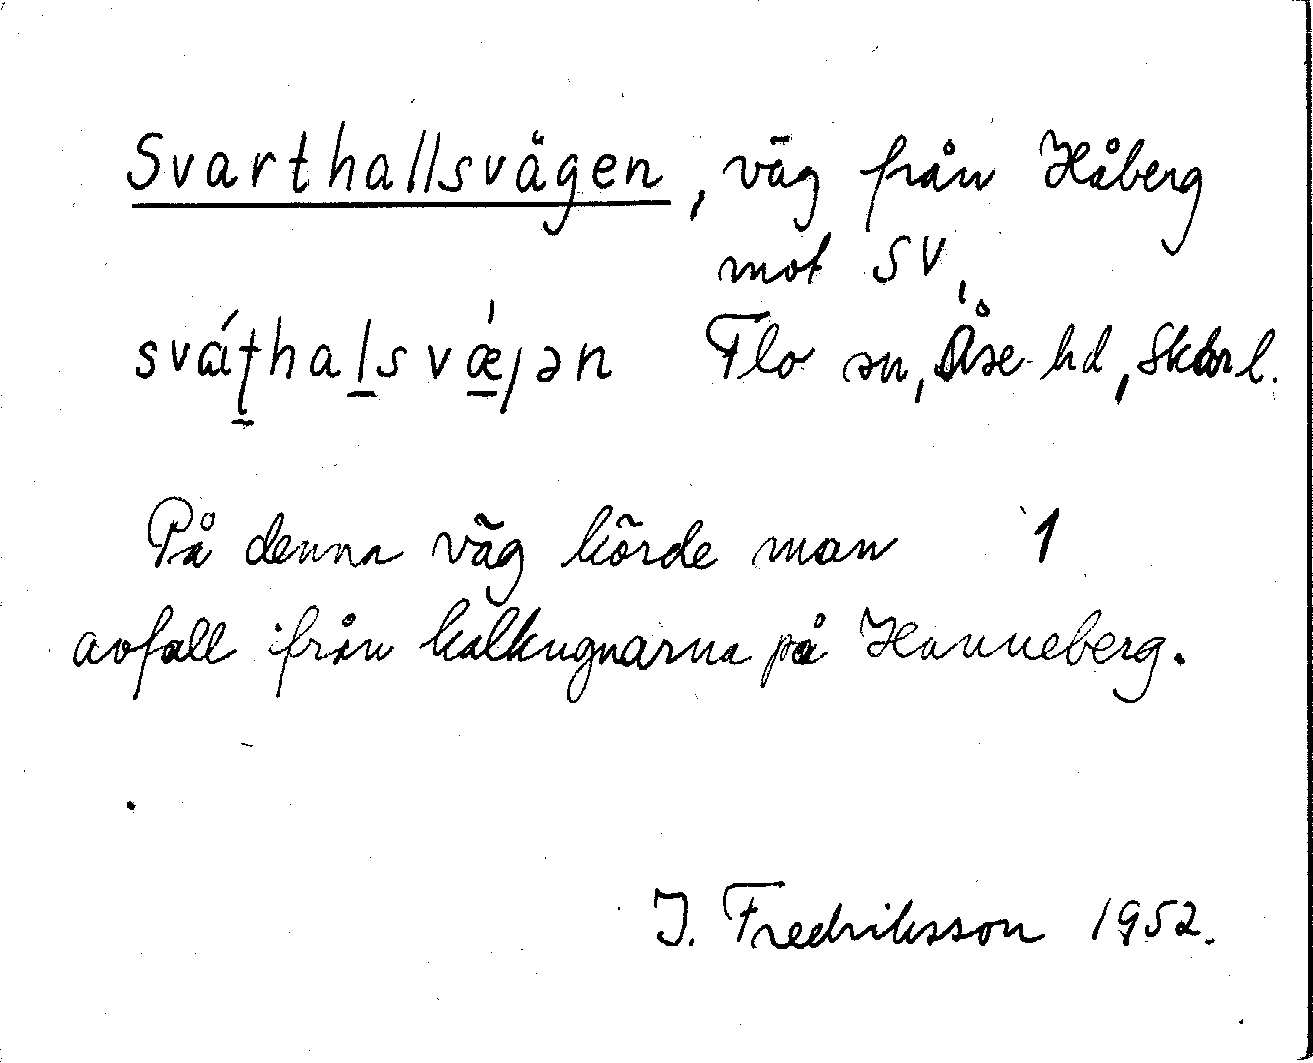 Svarthallsvägen, väg från Håberg
mot SV,
sváṭhalsvǽjən Flo sn, Åse hd, Skbr l.
På denna väg körde man 1
avfall från kalkugnarna på Hunneberg.
I. Fredriksson 1952.